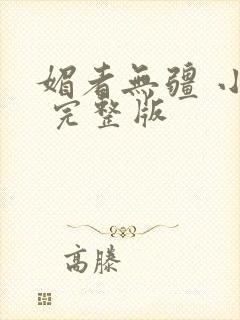 媚者無疆 小
完整版
高滕